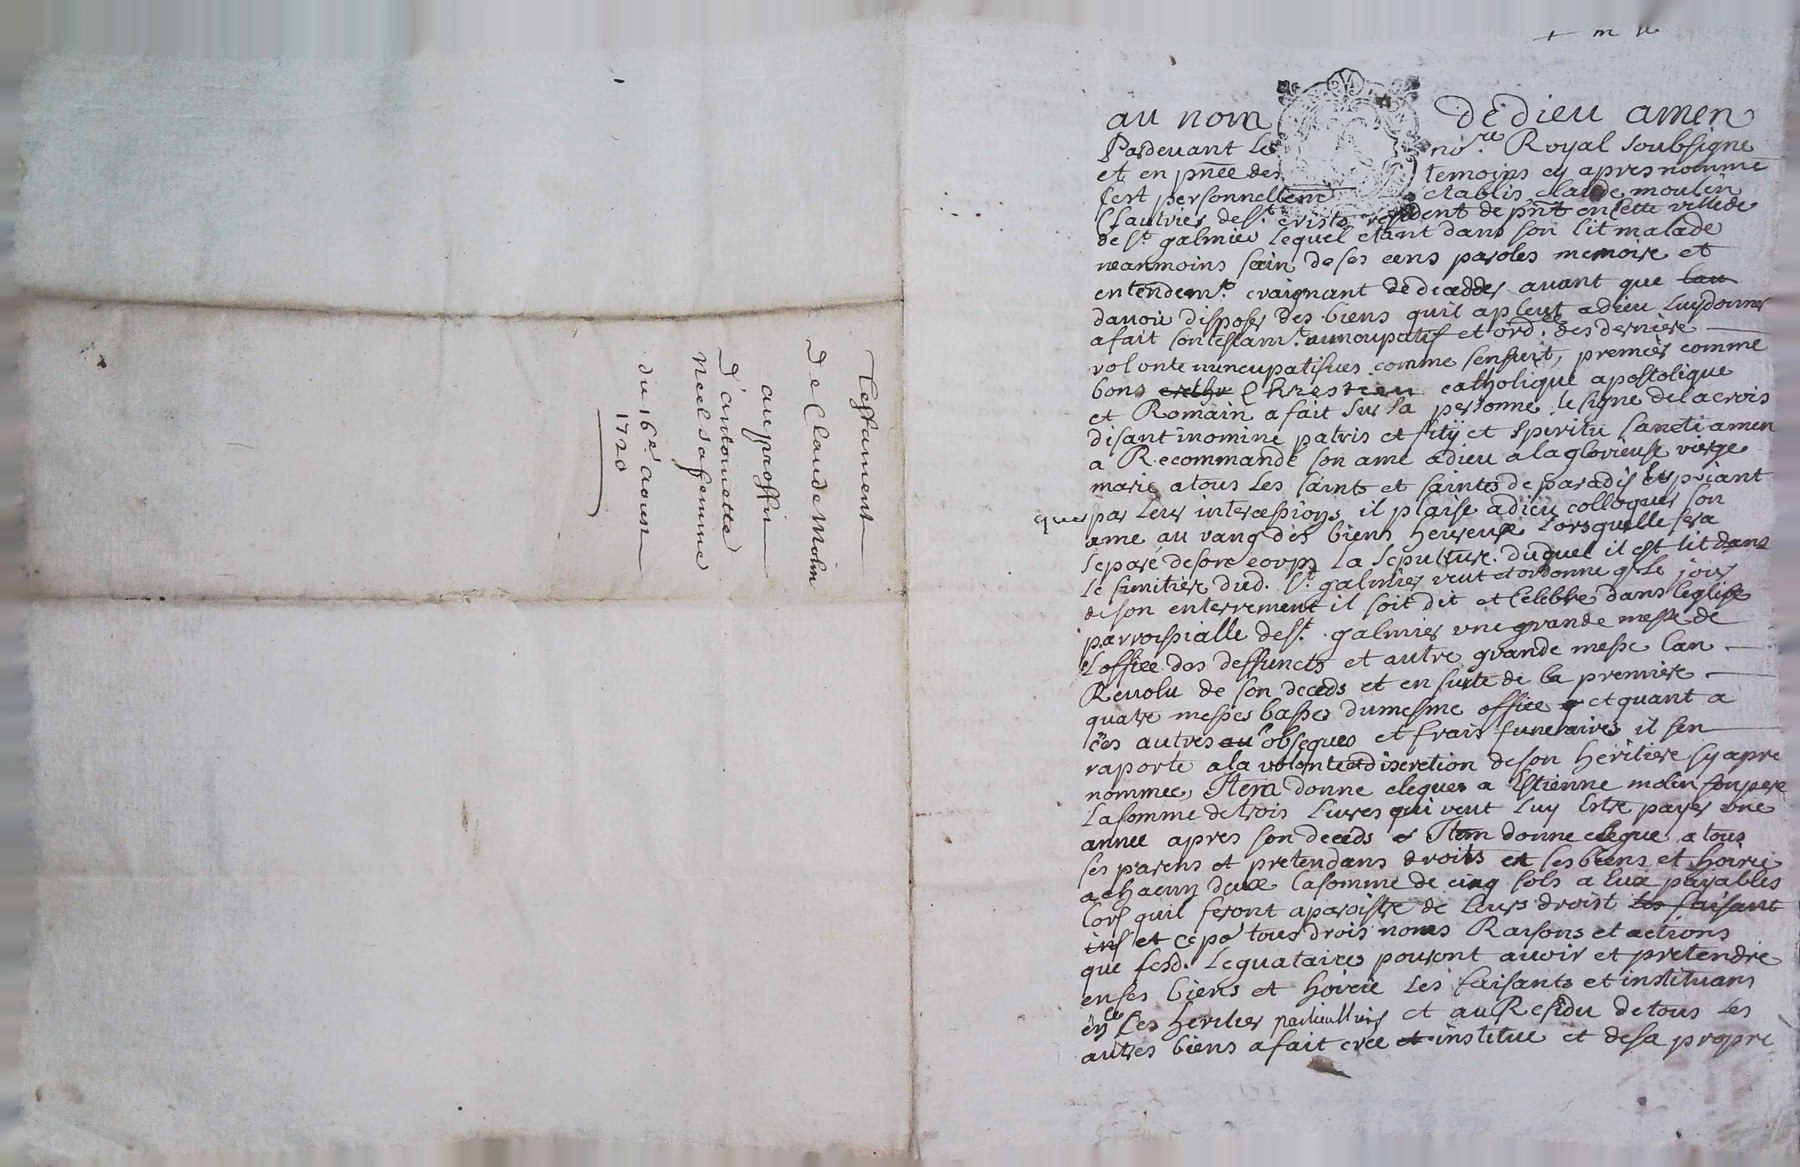 Testament
De Claude Molin
au proffit
d'antoinette
neel sa femme
du 16e. aoust
1720
au nom de dieu amen
Pardevant le no.re Royal soubsigne
et en pnce des temoins cy apres nomme
sest personnellem établis claude moulin
de st. resident de pnt en cette ville de
de st. galmier lequel etant dans son lit malade
neanmoins sain de ses cens paroles memoire et
entendem.t craignant de deceddes avant que
davoir disposer des biens quil a pleut a dieu luy donner
a fait son testam.t nuncupatif et ord. ses derniere
volonte nuncupatifves comme sensuit, premier comme
bons Chrestien catholique apostolique
et Romain a fait sur sa personne le signe de la crois
disant inomine patris et filij et spiritu sancti amen
a Recommandé son ame a dieu a la glorieuse vierge
marie a tous les saints et saintes de paradis les priant
que par leur intercessions il plaise a dieu colloquer son
ame au rang des biens heureux lorsquelle sera
separé de son corps la sepulture duquel il eslit dans
le simitier dud. st. galmier veut et ordonne q. le jour
de son enterrement il soit dit et celebre dans leglise
parroissialle de st. galmier une grande messe de
l'office des deffuncts et autre grande messe lan
Revolu de son deceds et en suite de la premiere
quatre messes basses du mesme office et quant a
ces autres obseques et frais funeraires il sen
raporte a la volonte et discretion de son heritiere sy apre
nommee, Item donne elegues a Estienne molin son pere
la somme de trois livres qui veut luy estre payer une
annee apres son deceds Item donne elegue a tous
ses parens et pretendans droits en ses biens et hoirie
a chacun deux la somme de cinq sols a eux payables
lors quil feront aparoistre de leurs droist les faisant
ins et ce po tous drois noms Raisons et actions
que sesd. lequataires pouront avoir et pretendre
en ses biens et hoirie les faisants et instituans
en ce ses heritiers particulliers et au Residu de tous les
autres biens a fait cree et institue et de sa propre